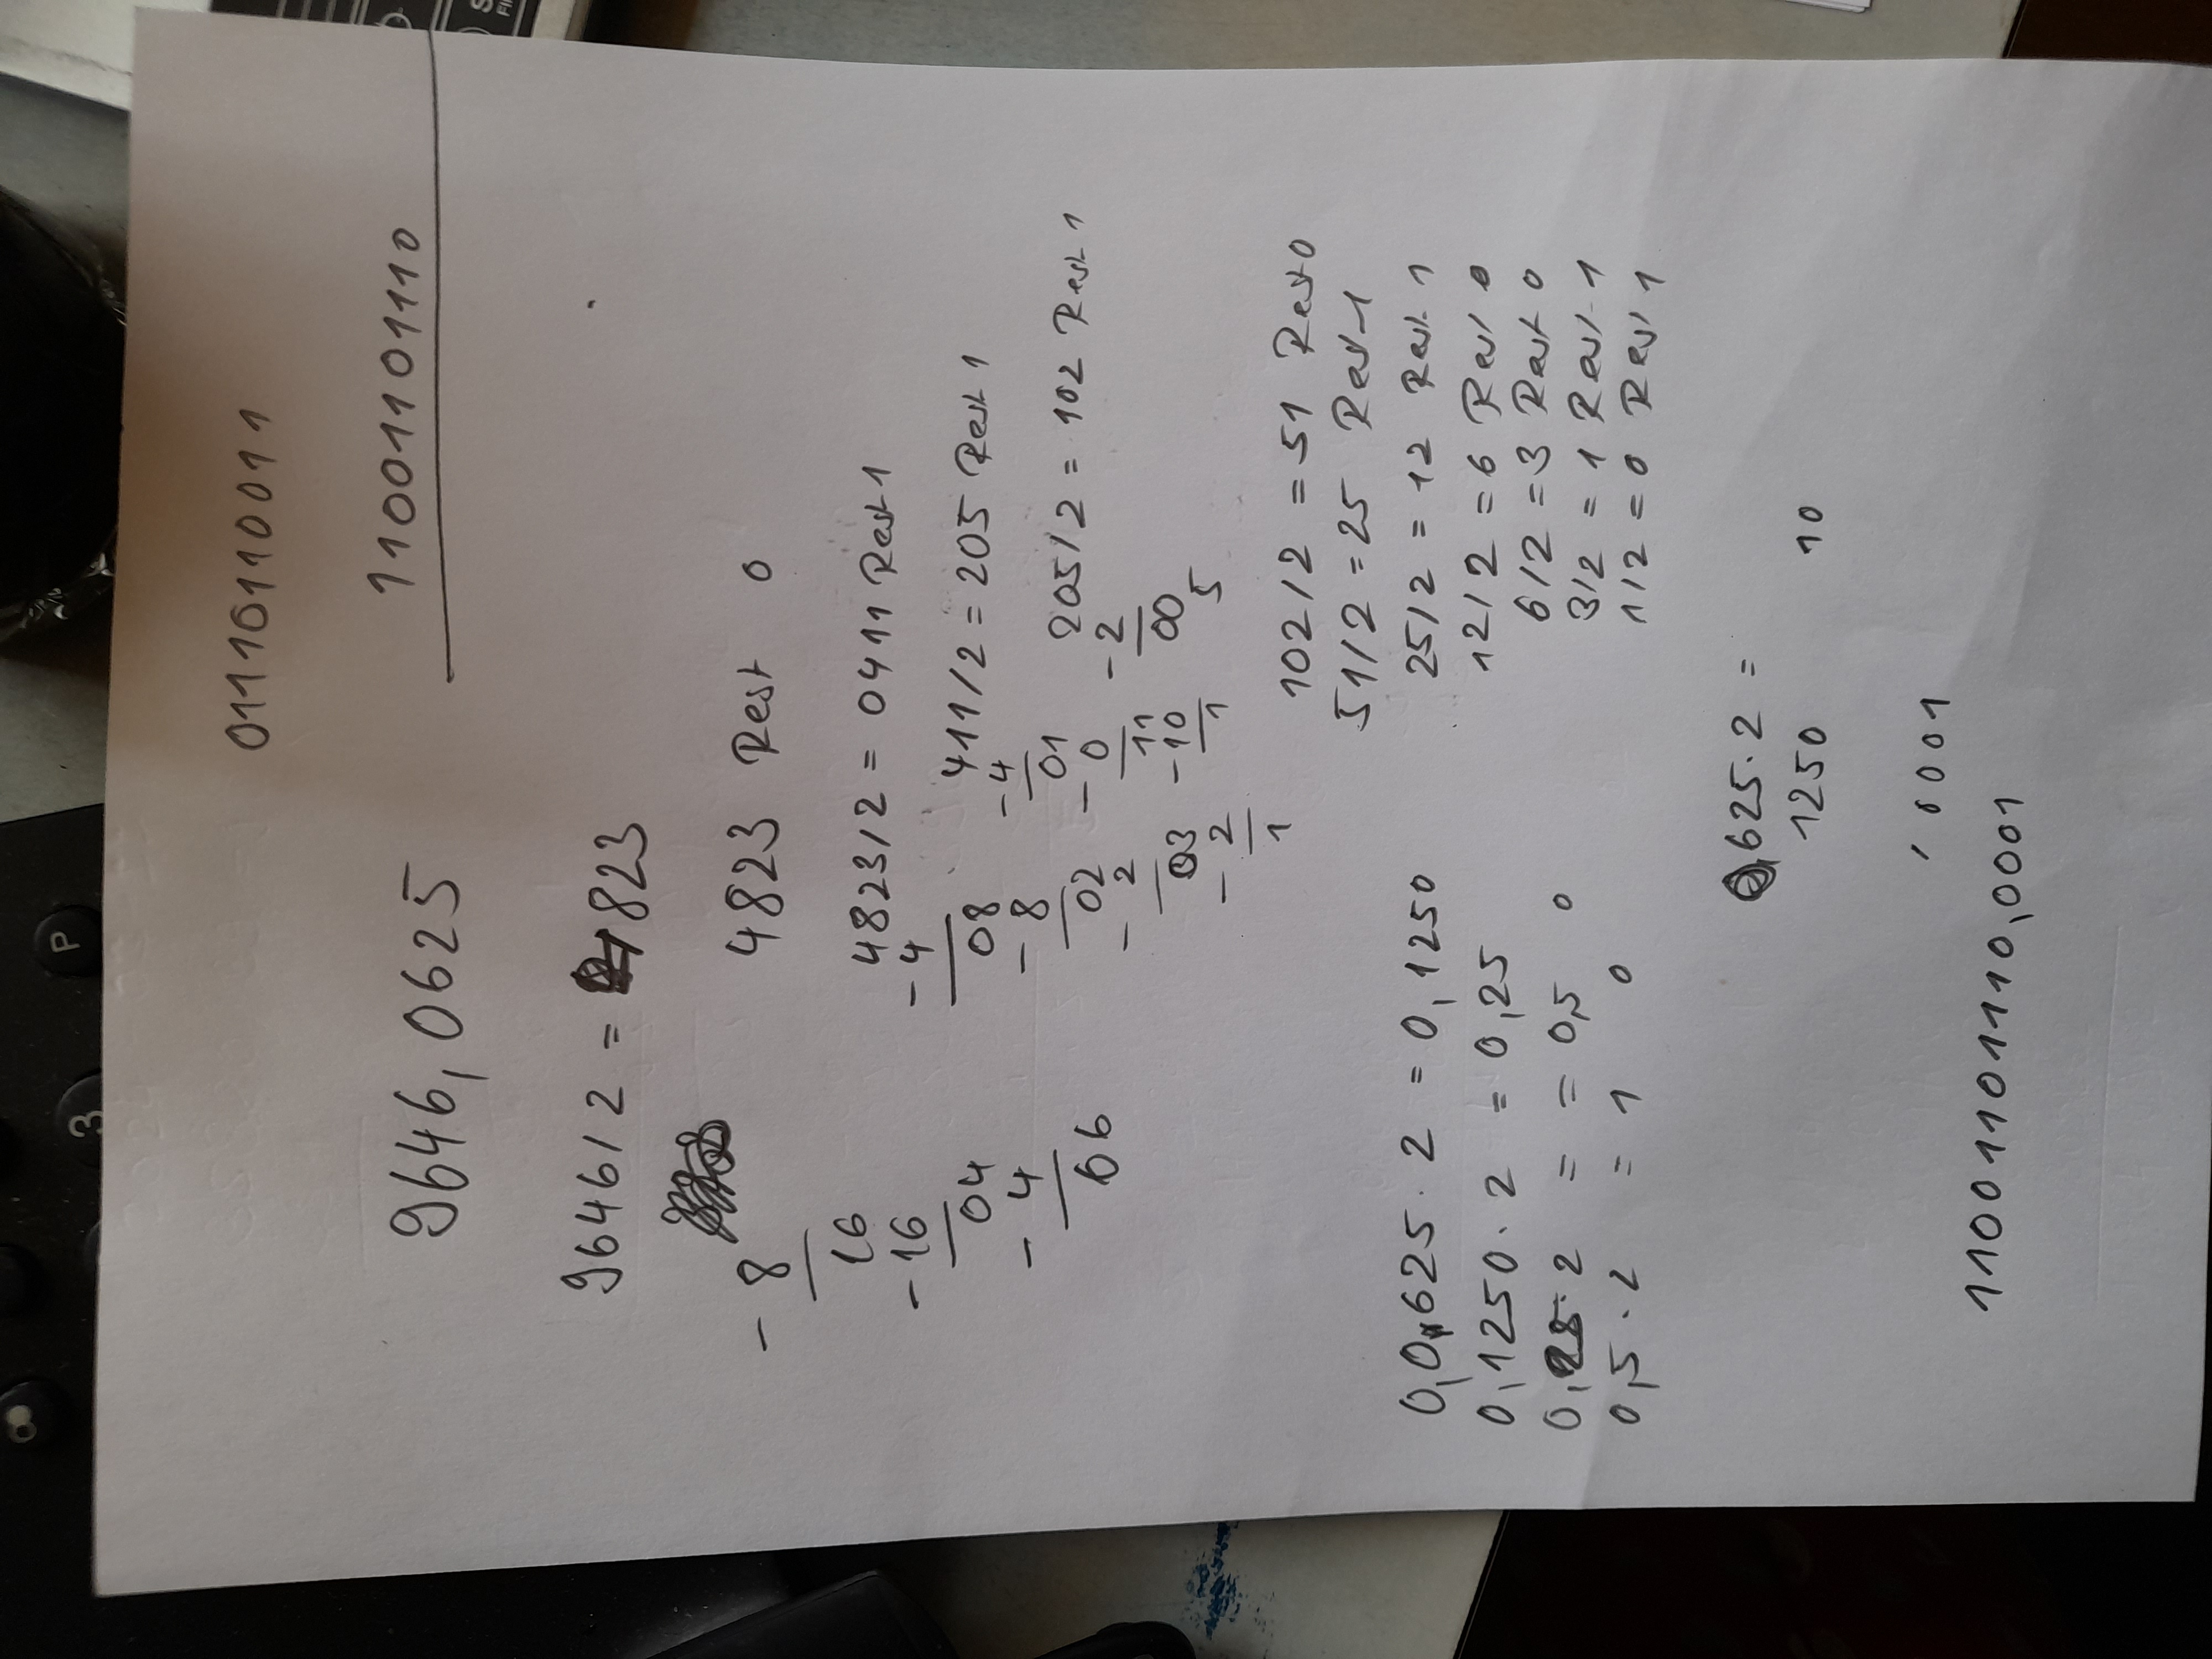 01110110011
9646,0625
11001101110
9646/2 = 4823
- 8
16
- 16
04
- 4
06
4823 Rest 0
4823/2 = 0411 Rest 1
- 4
08
- 8
02
- 2
03
- 2
1
411/2 = 205 Rest 1
- 4
01
- 0
11
- 10
1
205/2 = 102 Rest 1
- 2
00
5
102/2 = 51 Rest 0
51/2 = 25 Rest 1
25/2 = 12 Rest 1
12/2 = 6 Rest 0
6/2 = 3 Rest 0
3/2 = 1 Rest 1
1/2 = 0 Rest 1
0,0625 · 2 = 0,1250
0,1250 · 2 = 0,25
0,25 · 2 = = 0,5 0
0,5 · 2 = 1 0
625 · 2 =
1250 10
, 0001
11001101110,0001
P
3
8